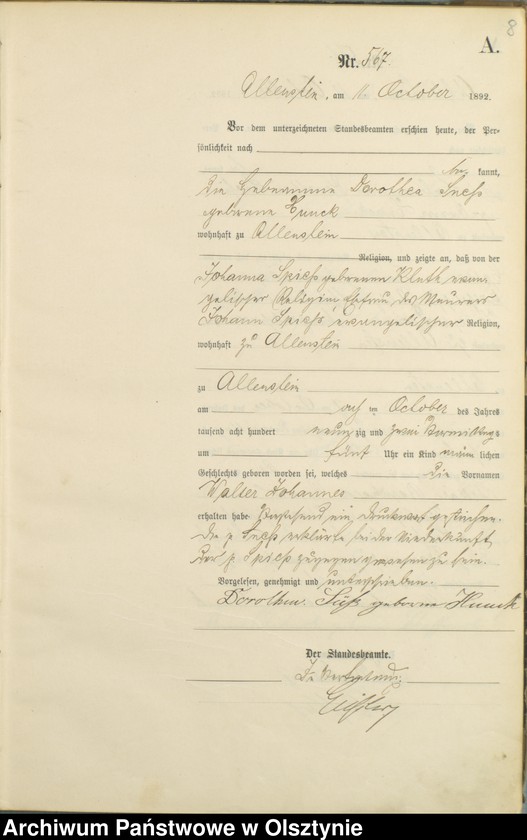 8
A.
Nr. 567.
Allenstein, am 11. October 1892.
Vor dem unterzeichneten Standesbeamten erschien heute, der Per-
sönlichkeit nach
kannt,
die Hebamme Dorothea Suess
geborene Hunck
wohnhaft zu Allenstein
Religion, und zeigte an, daß von der
Johanna Spiess geborenen Kluth evan-
gelischer Religion, Ehefrau des Maurers
Johann Spiess, evangelischer Religion,
wohnhaft zu Allenstein
zu Allenstein
am ten October des Jahres
tausend acht hundert neunzig und zwei Vormittags
um fünf Uhr ein Kind männlichen
Geschlechts geboren worden sei, welches die Vornamen
Walter Johannes
erhalten habe. Vorstehend ein Druckwort gestrichen.
Die p. Suess erklärte, bei der Niederkunft
der p. Spiess zugegen gewesen zu sein.
Vorgelesen, genehmigt und unterschrieben.
Dorothea Süß geborne Hunck
Der Standesbeamte.
In Vertretung
Archiwum Państwowe w Olsztynie